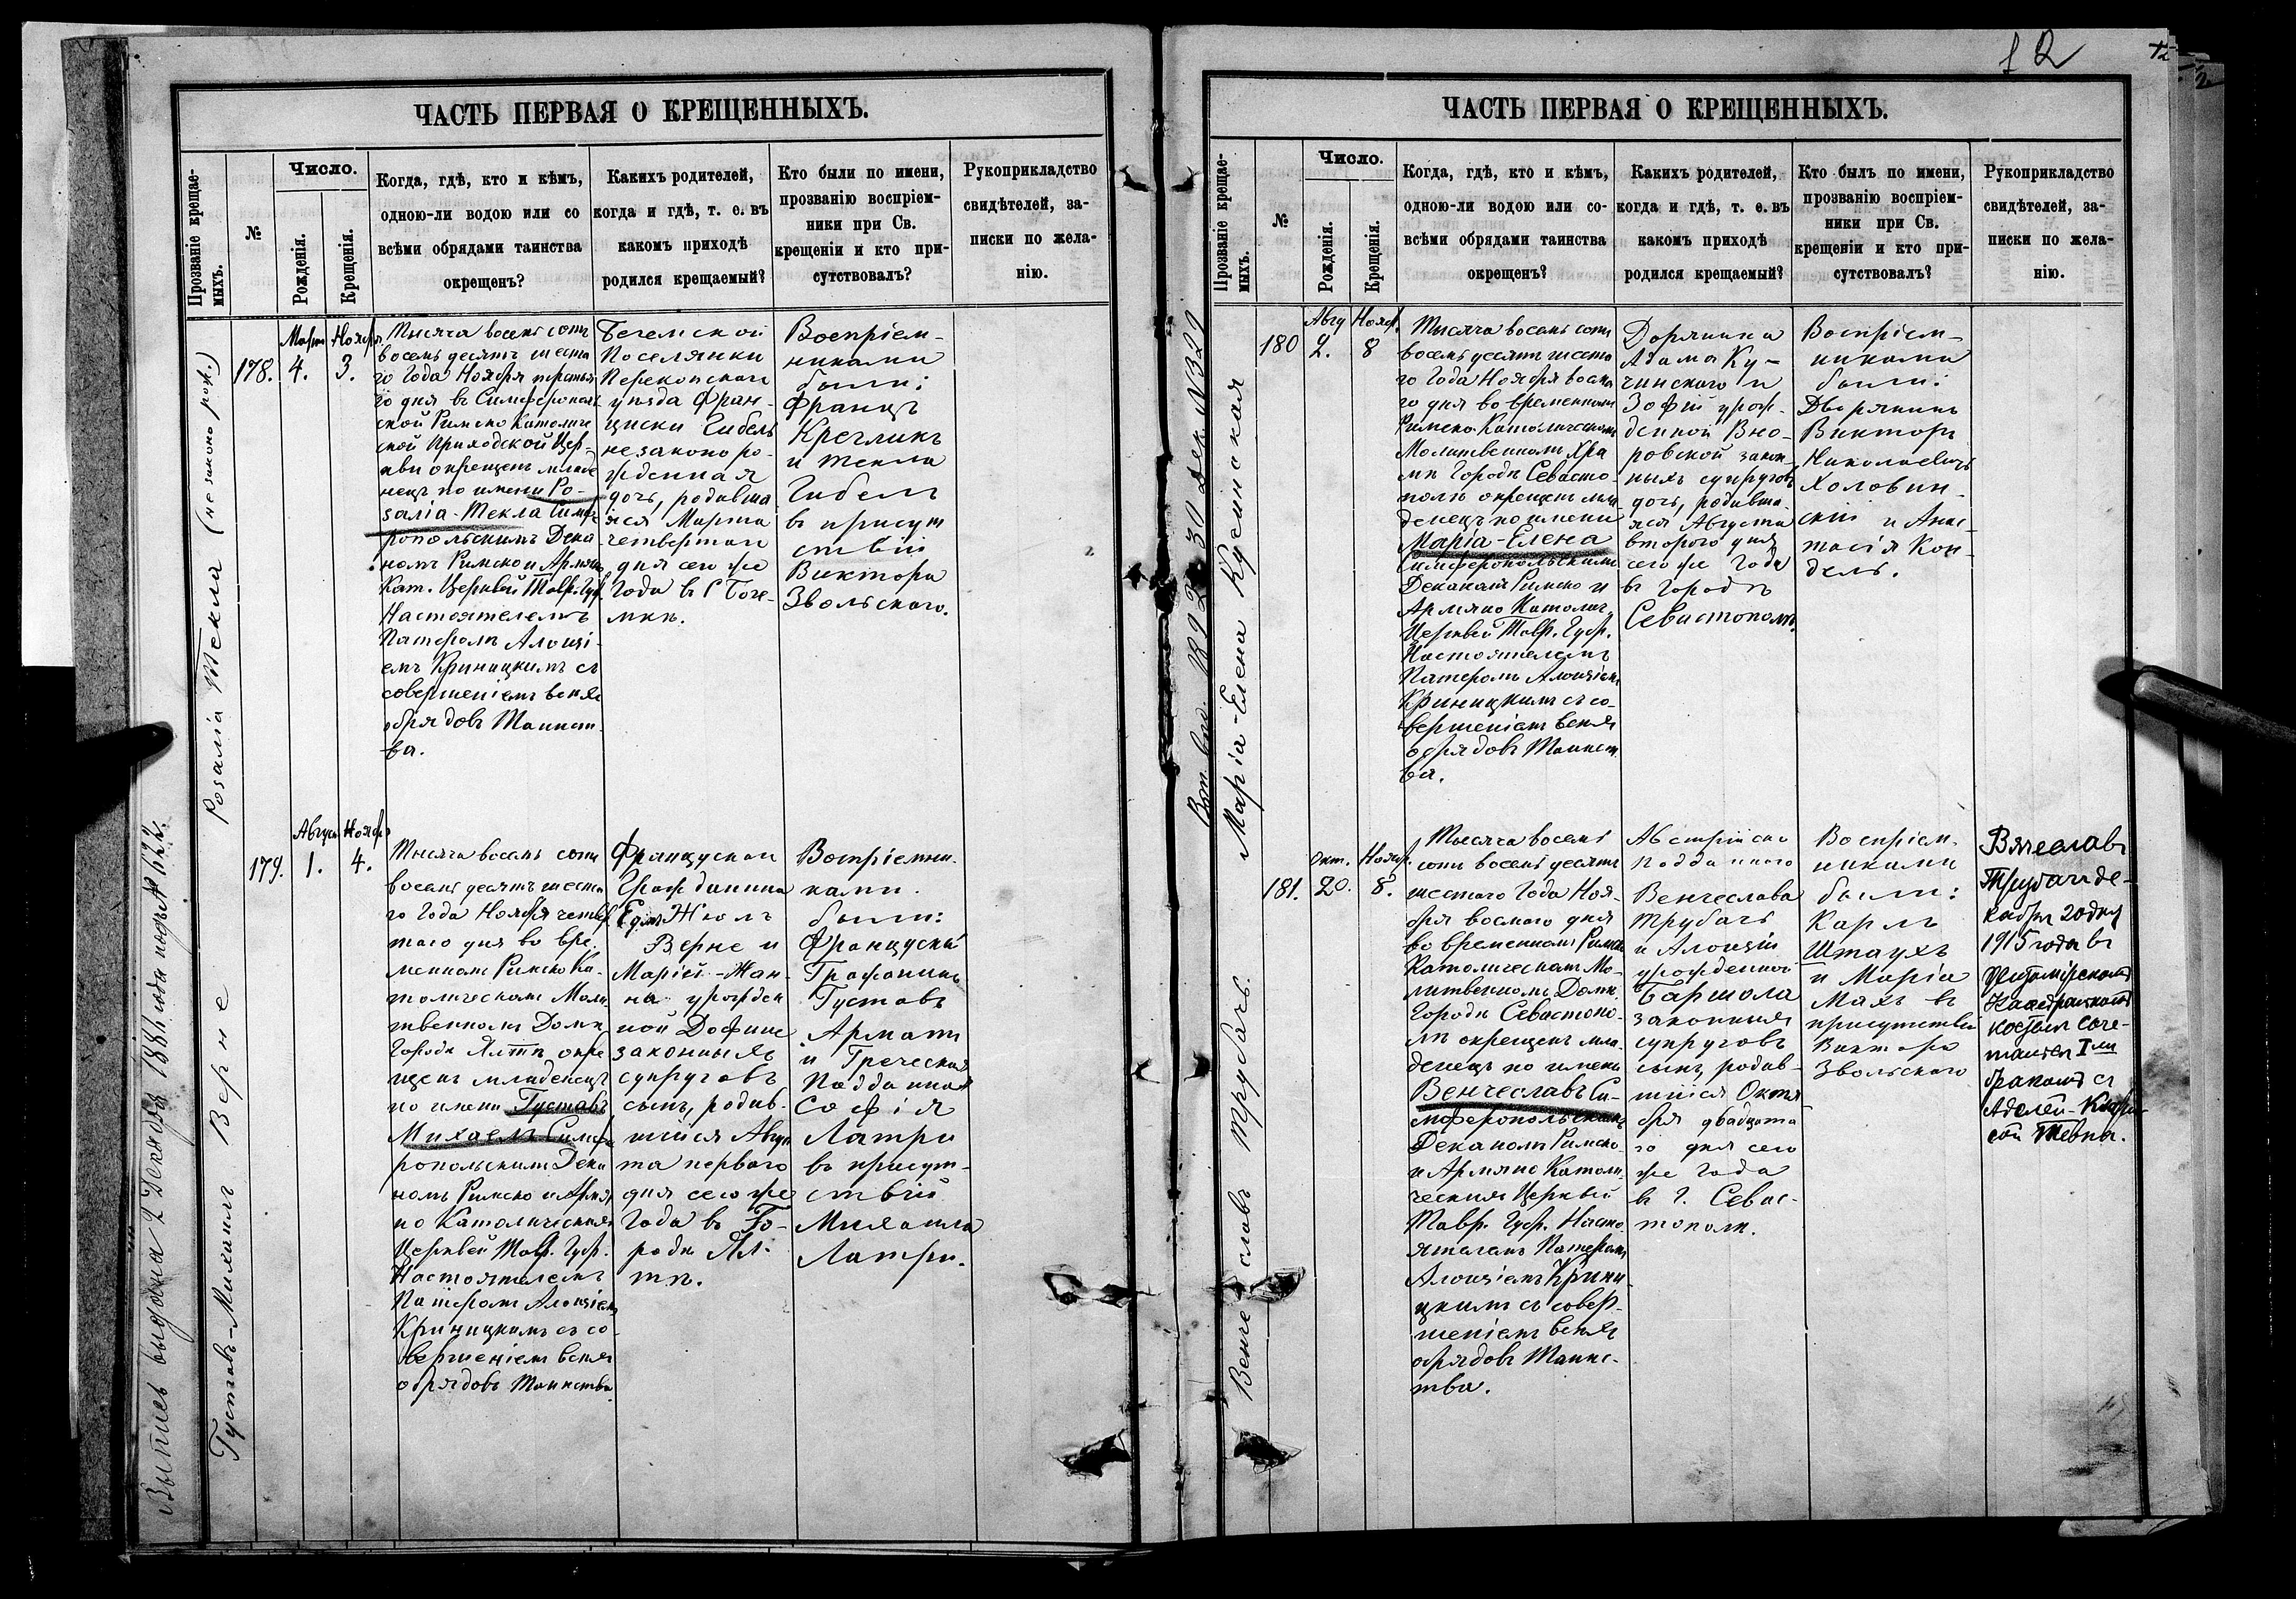 12
ЧАСТЬ ПЕРВАЯ О КРЕЩЕННЫХЪ.
Прозваніе крещае-
мыхъ.
№
Число.
Рожденія.
Крещенія.
Когда, гдѣ, кто и кѣмъ,
одною-ли водою или со
всѣми обрядами таинства
окрещенъ?
Какихъ родителей,
когда и гдѣ, т. е. въ
какомъ приходѣ
родился крещаемый?
Кто были по имени,
прозванію воспріем-
ники при Св.
крещеніи и кто при-
сутствовалъ?
Рукоприкладство
свидѣтелей, за-
писки по жела-
нію.
Розалія Текла (незаконо рож.)
178.
Март
4.
Нояб.
3.
Тысяча восемь сотъ
восемьдесятъ шеста
го Года Ноября третья
го дня въ Симферополь
ской Римско Католиче
ской Приходской Цер-
кви окрещенъ младе
нецъ по имени Ро-
залія-Текла Симфе
ропольскимъ Дека
номъ Римско и Армяно
Кат. Церквей Тавр. Губ.
Настоятелемъ
Патеромъ Алоизі-
емъ Криницкимъ съ
совершеніемъ всѣхъ
обрядовъ Таинст-
ва.
Богемской
Поселянки
Перекопскаго
уѣзда Фран-
циски Гибель
незаконоро-
жденная
дочь, родивша
яся Марта
четвертаго
дня сего же
Года въ С Боге-
мкѣ.
Воспріем-
никами
были:
Францъ
Крегликъ
и Текла
Гибель
въ присут
ствіи
Виктора
Звольскаго.
Выпись выдана 2 Декабря 1886 года подъ № 622.
Густавъ-Михаилъ Верне
179.
Август
1.
Нояб.
4.
Тысяча восемь сотъ
восемьдесятъ шеста
го Года Ноября четвер
таго дня во вре-
менномъ Римско Ка-
толическомъ Моли
твенномъ Домѣ
Города Ялтѣ окре
щенъ младенецъ
по имени Густавъ
Михаелъ Симфе
ропольскимъ Дека
номъ Римско и Армя
но Католическихъ
Церквей Тавр. Губ.
Настоятелемъ
Патеромъ Алоизіемъ
Криницкимъ съ со-
вершеніемъ всѣхъ
обрядовъ Таинства
Французскаго
Гражданина
Жюль
Верне и
Маріи-Жан-
на урожден
ной Дофине
законныхъ
супруговъ
сынъ, родив-
шійся Авгус
та перваго
дня сего же
Года въ Го-
родѣ Ял-
тѣ.
Воспріемни-
ками
были:
Французскій
Гражданинъ
Густавъ
Арманъ
и Греческая
Подданная
Софія
Латри
въ присут-
ствіи
Михаила
Латри.
12
ЧАСТЬ ПЕРВАЯ О КРЕЩЕННЫХЪ.
Прозваніе крещае-
мыхъ.
№
Число.
Рожденія.
Крещенія.
Когда, гдѣ, кто и кѣмъ,
одною-ли водою или со-
всѣми обрядами таинства
окрещенъ?
Какихъ родителей,
когда и гдѣ, т. е. въ
какомъ приходѣ
родился крещаемый?
Кто былъ по имени,
прозванію воспріем-
ники при Св.
крещеніи и кто при-
сутствовалъ?
Рукоприкладство
свидѣтелей, за-
писки по жела-
нію.
1892 30 Дек. №329
Марія-Елена Кучинская
180
Авгу
2.
Нояб.
8
Тысяча восемь сотъ
восемьдесятъ шеста
го Года Ноября восьма
го дня во временномъ
Римско Католическомъ
Молитвенномъ Хра
мѣ Города Севасто-
поля окрещенъ мла
денецъ по имени
Марія-Елена
Симферопольскимъ
Деканомъ Римско и
Армяно Католич.
Церквей Тавр. Губ.
Настоятелемъ
Патеромъ Алоизіемъ
Криницкимъ съ со-
вершеніемъ всѣхъ
обрядовъ Таинст
ва.
Дорянина
Адама Ку-
чинскаго и
Зофіи урож-
денной
закон-
ныхъ супруговъ
дочь, родивша-
яся Августа
второго дня
сего же Года
въ Городѣ
Севастополѣ.
Воспріем-
никами
были:
Дворянинъ
Викторъ
Николаевичъ
Холовин-
скій и Анас-
тасія Кон-
дель.
Венчеславъ Трубачъ.
181.
Окт.
20.
Нояб.
8.
Тысяча восемь
сотъ восемьдесятъ
шестаго Года Ноя-
бря восмаго дня
во временномъ Римско
Католическомъ Мо-
литвенномъ Домѣ
Города Севастопо-
лѣ окрещенъ мла-
денецъ по имени
Венчеславъ Си-
мферопольскимъ
Деканомъ Римско-
и Армяно Католи-
ческихъ Церквей
Тавр. Губ. Насто
ятелемъ Патеромъ
Алоизіемъ Крини-
цкимъ съ совер-
шеніемъ всѣхъ
обрядовъ Таинс-
тва.
Австрійско
подданнаго
Венчеслава
Трубачъ
и Алоизіи
урожденной
Бартола
законныхъ
супруговъ
сынъ, родив-
шійся Октя
бря двадцата
го дня сего
же Года
въ Г. Севас-
тополѣ.
Воспріем-
никами
были:
Карлъ
Штаухъ
и Марія
Махъ въ
присутствіи
Виктора
Звольскаго
Вячеславъ
Трубачъ де-
кабря 20 дня
1915 года въ
Житомірскомъ
Кафедральномъ
костелѣ соче-
тался Iмъ
бракомъ съ